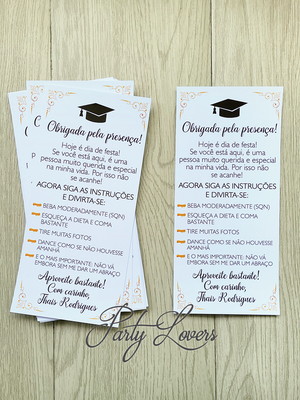 Obrigada pela presença!
Hoje é dia de festa!
Se você está aqui, é uma
pessoa muito querida e especial
na minha vida. Por isso não
se acanhe!
AGORA SIGA AS INSTRUÇÕES
E DIVIRTA-SE:
BEBA MODERADAMENTE (SQN)
ESQUEÇA A DIETA E COMA
BASTANTE
TIRE MUITAS FOTOS
DANCE COMO SE NÃO HOUVESSE
AMANHÃ
E O MAIS IMPORTANTE: NÃO VÁ
EMBORA SEM ME DAR UM ABRAÇO
Aproveite bastante!
Com carinho,
Thais Rodrigues
Obrigada pela presença!
Hoje é dia de festa!
Se você está aqui, é uma
pessoa muito querida e especial
na minha vida. Por isso não
se acanhe!
AGORA SIGA AS INSTRUÇÕES
E DIVIRTA-SE:
BEBA MODERADAMENTE (SQN)
ESQUEÇA A DIETA E COMA
BASTANTE
TIRE MUITAS FOTOS
DANCE COMO SE NÃO HOUVESSE
AMANHÃ
E O MAIS IMPORTANTE: NÃO VÁ
EMBORA SEM ME DAR UM ABRAÇO
Aproveite bastante!
Com carinho,
Thais Rodrigues
Party Lovers